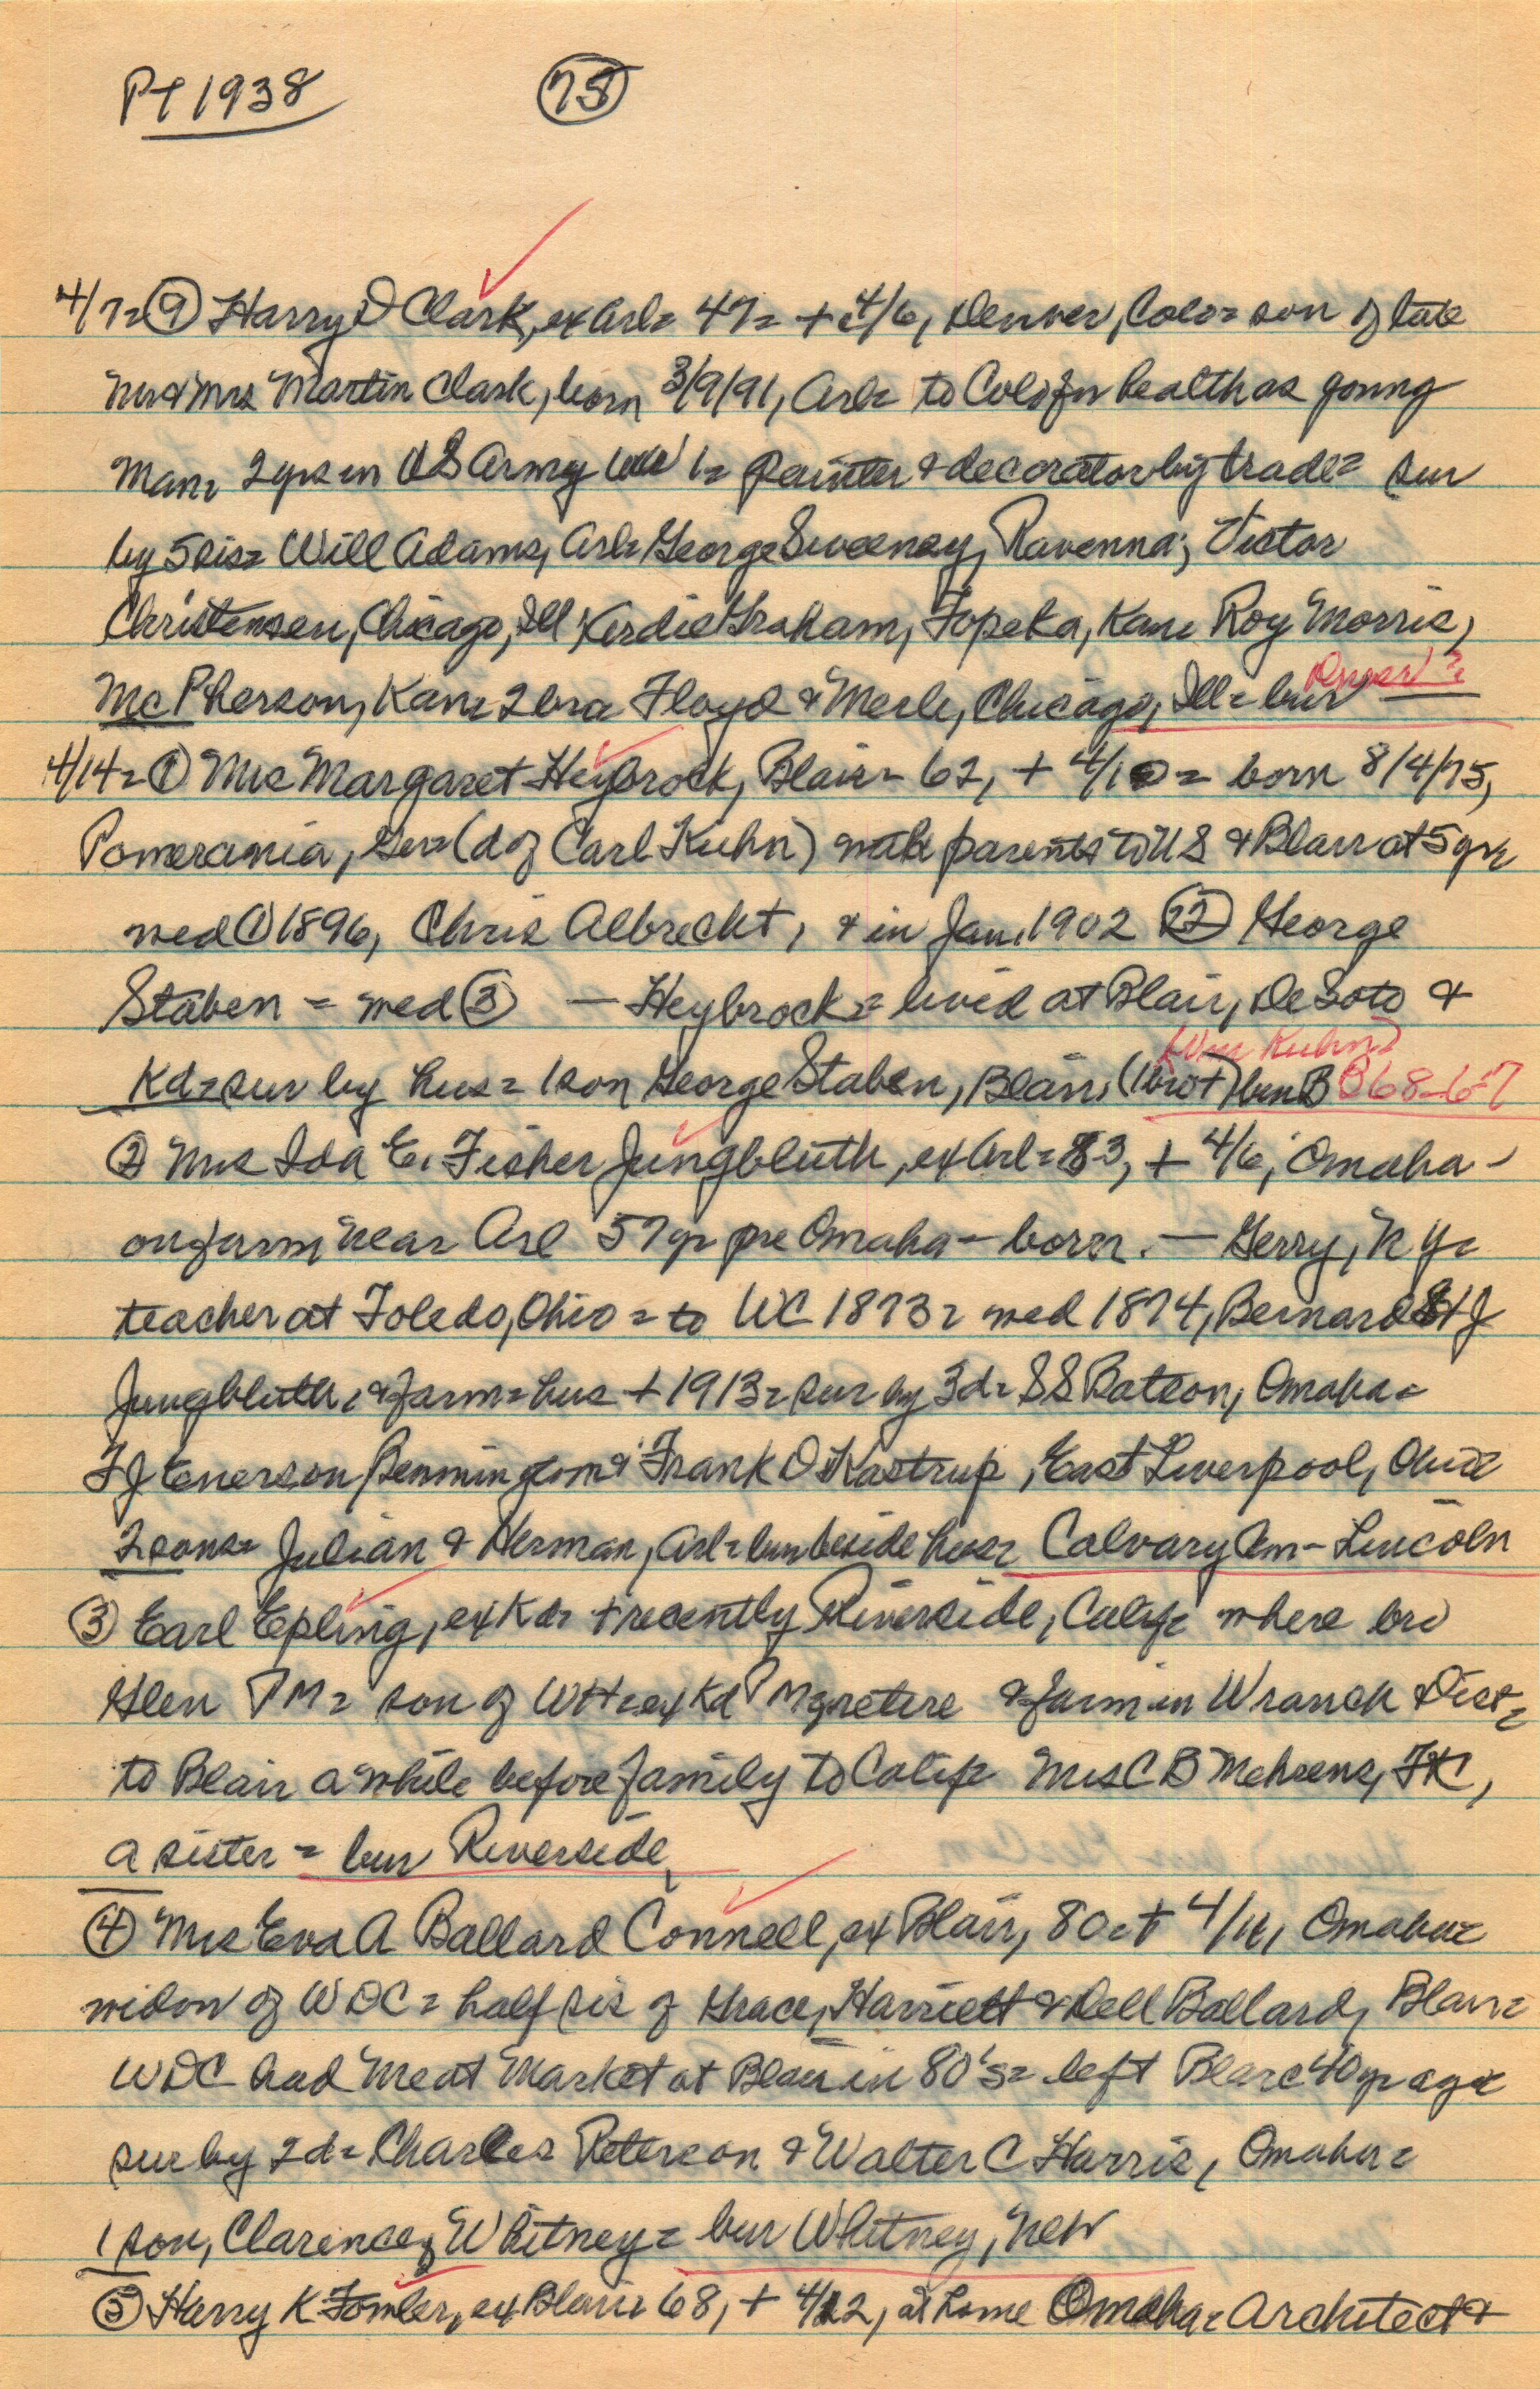 PT 1938 (75)
4/7= (9) Harry D Clark, ex Arl= 47= + 4/6, Denver, Colo= son of late
Mr & Mrs Martin Clark, born 3/9/91, Arl= to Colo for health as young
man= 2 yrs in US Army WW 1= painter & decorator by trade= sur
by 5 sis= Will Adams, Arl= George Sweeney, Ravenna; Victor
Christensen, Chicago, Ill Kerdie Graham, Topeka, Kan= Roy Morris,
McPherson, Kan= 2 bro Floyd & Merle, Chicago, Ill= bur Denver?=
4/14= (1) Mrs Margaret Heybrock, Blair= 62, + 4/10= born 8/4/75,
Pomerania, Ger= (d of Carl Kuhn) with parents to US & Blair at 5 yr=
med (1) 1896, Chris Albrecht, & in Jan, 1902 (2) George
Staben = med (3) — Heybrock= lived at Blair, DeSoto &
Kd= sur by hus= 1 son George Staben, Blair, (1 bro +) bur B (Wm Kuhn) 368-6-7
(2) Mrs Ida E. Fisher Jungbluth, ex Arl= 83, + 4/6, Omaha -
on farm near Arl 57 yr pre Omaha - born. — Gerry, N Y=
teacher at Toledo, Ohio = to WC 1873= med 1874, Bernard J
Jungbluth, & farm= hus + 1913= sur by 3 d= S S Batson, Omaha=
F J Enerson Bennington & Frank O Kastrup, East Liverpool, Ohio=
2 sons= Julian & Herman, Arl= bur beside hus= Calvary Cem - Lincoln
(3) Earl Epling, ex Kd= + recently Riverside, Calif= where bro
Glen PM= son of WH= ex Kd & farm in W ranch Dist=
to Blair a while before family to Calif= Mrs C B Mehrens, FtC,
a sister = bur Riverside,
(4) Mrs Eva A Ballard Connell, ex Blair, 80= + 4/11, Omaha=
widow of WDC= half sis of Grace, Harriett & Dell Ballard, Blair=
WDC had Meat Market at Blair in 80's= left Blair 40 yr ago=
sur by 2 d= Charles Peterson & Walter C Harris, Omaha=
1 son, Clarence, Whitney= bur Whitney, Neb
(5) Harry K Fowler, ex Blair= 68, + 4/12, at home Omaha= Architect &